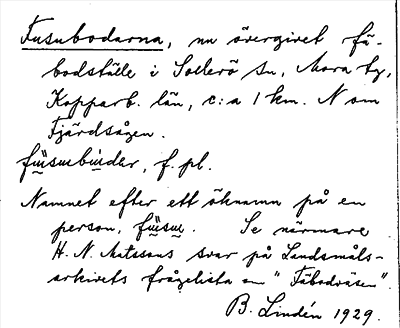 Fusubodarna, nu övergivet fä-
bodställe i Sollerö sn, Mora tg,
Kopparb. län, c:a 1 km. N om
Fjärdsågen.
fu̇subu̇der, f. pl.
Namnet efter ett öknamn på en
person, fu̇su. Se närmare
H. N. Matssons svar på Landsmåls-
arkivets frågelista om "Fäbodväsen".
B. Lindén 1929.